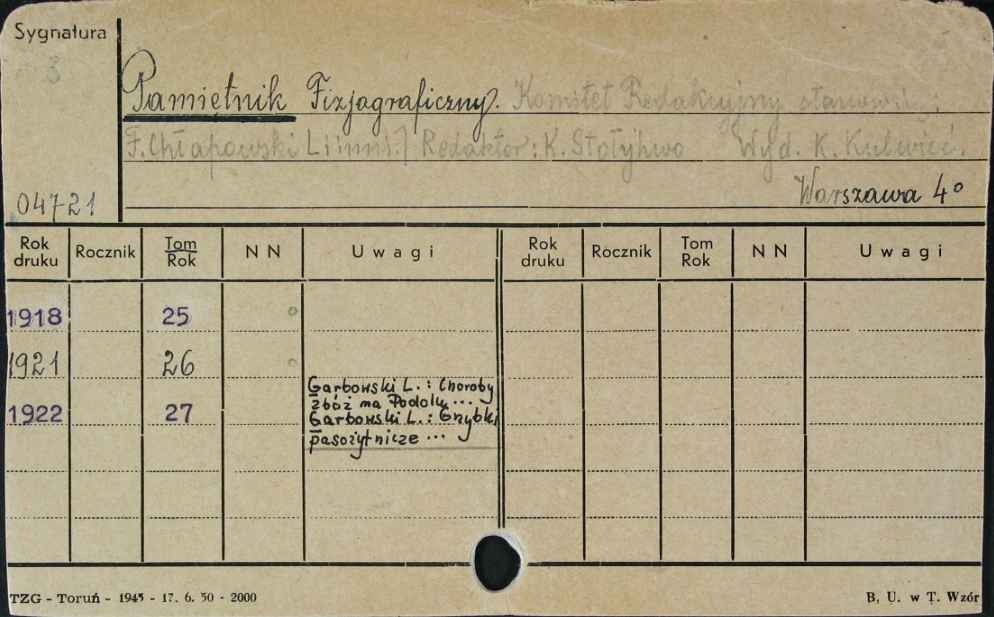 Sygnatura
3
Pamiętnik Fizjograficzny. Komitet Redakcyjny stanowili:
F. Chłapowski [i inni.] Redaktor: K. Stołyhwo Wyd. K. Kulwieć.
04721 Warszawa 4°
Rok druku Rocznik Tom Rok N N Uwagi Rok druku Rocznik Tom Rok N N Uwagi
1918 25
1921 26
Garbowski L.: Choroby
zbóż na Podolu ...
1922 27 Garbowski L.: Grzybki
pasożytnicze ...
TZG - Toruń - 1945 - 17. 6. 50 - 2000 B. U. w T. Wzór